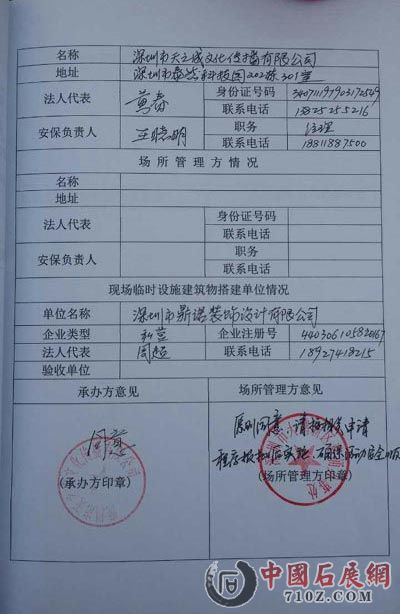 名称 深圳市天之成文化传播有限公司
地址 深圳市 科技园202栋301室
法人代表 身份证号码
联系电话 13825255216
安保负责人 王晓明 职务 经理
联系电话 18811887500
场所管理方情况
名称
地址
法人代表 身份证号码
联系电话
安保负责人 职务
联系电话
现场临时设施建筑物搭建单位情况
单位名称 深圳市鼎诺装饰设计有限公司
企业类型 私营 企业注册号
法人代表 周超 联系电话 18927418215
验收单位
承办方意见 场所管理方意见
同意
原则同意,请按报批申请
程序报批后实施,确保活动安全
(承办方印章) (场所管理方印章)
中國石展網
710Z.COM